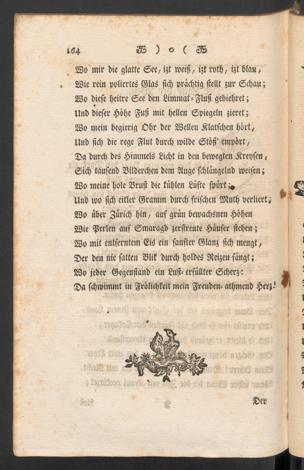 164 ❧ ) o ( ❧
Wo mir die glatte See, izt weiß, izt roth, izt blau,
Wie rein poliertes Glas sich prächtig stellt zur Schau;
Wo diese heitre See den Limmat-Fluß gebiehret;
Und dieser Höhe Fuß mit hellen Spiegeln zieret;
Wo mein begierig Ohr der Wellen Klatschen hört,
Und sich die rege Flut durch wilde Stöß' empört,
Da durch des Himmels Licht in den bewegten Kreysen,
Sich tausend Bilderchen dem Auge schlängelnd weisen;
Wo meine hole Brust die kühlen Lüfte spürt;
Und wo sich eitler Gramm durch frischen Muth verliert;
Wo über Zürich hin, auf grün bewachsnen Höhen
Wie Perlen auf Smaragd zerstreute Häuser stehen;
Wo mit entferntem Eis ein sanfter Glanz sich mengt,
Der den nie satten Blik durch holdes Reizen fängt;
Wo jeder Gegenstand ein Lust-erfüllter Scherz:
Da schwimmt in Frölichkeit mein Freuden-athmend Herz!
Der